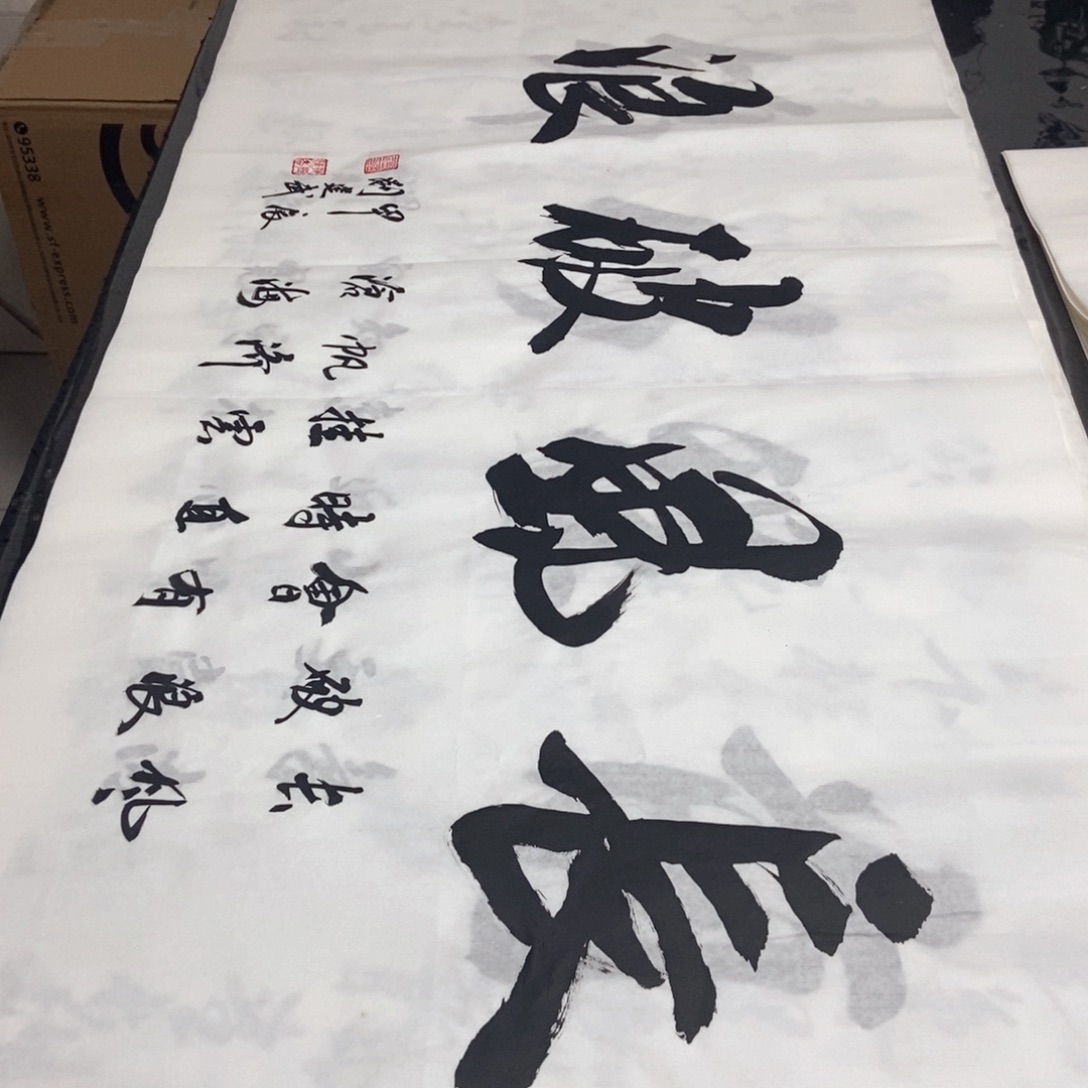 長風破浪
長風
破浪
會有
時直
挂雲
帆濟
滄海
甲辰
95338 www.sf-express.com